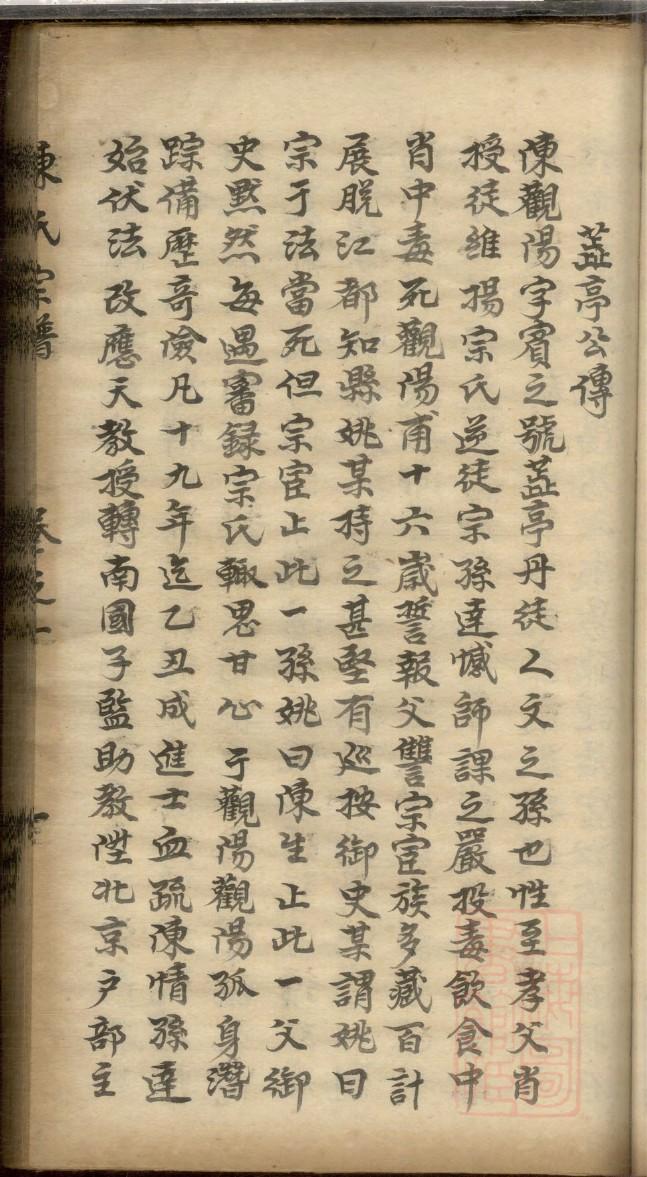 蓋亭公傳
陳觀陽字賓之號蓋亭丹徒人文之孫也性至孝父肖
授徒維揚宗氏逆徒宗孫達憾師課之嚴投毒飲食中
肖中毒死觀陽甫十六歲誓報父讐宗宦族多藏百計
展脫江都知縣姚某持之甚堅有巡按御史某謂姚曰
宗于法當死但宗宦止此一孫姚曰陳生止此一父御
史默然每遇審録宗氏輙思甘心于觀陽觀陽孤身潛
踪備歷奇儉凡十九年迄乙丑成進士血疏陳情孫達
始伏法改應天教授轉南國子監助教陞北京户部主
陳氏宗譜